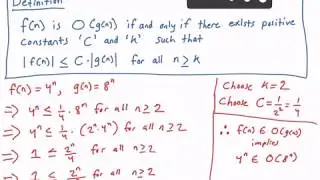 Definition
f(n) is O(g(n)) if and only if there exists positive
constants 'C' and 'k' such that
|f(n)| ≤ C·|g(n)| for all n ≥ k
f(n) = 4ⁿ, g(n) = 8ⁿ
⇒ 4ⁿ ≤ 1/4 · 8ⁿ for all n ≥ 2
⇒ 4ⁿ ≤ 1/4 · (2ⁿ·4ⁿ) for all n ≥ 2
⇒ 1 ≤ 2ⁿ/4 for all n ≥ 2
⇒ 1 ≤ 2ⁿ/ for all n ≥ 2
Choose k = 2
Choose C = 1/2² = 1/4
∴ f(n) ∈ O(g(n))
implies
4ⁿ ∈ O(8ⁿ)